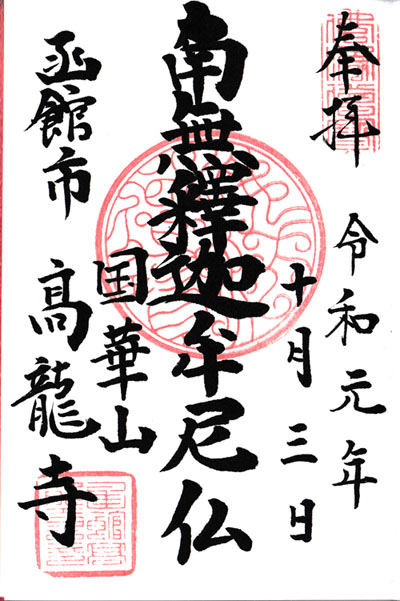 奉拝
令和元年
十月三日
南無釋迦牟尼仏
国華山
函館市 高龍寺